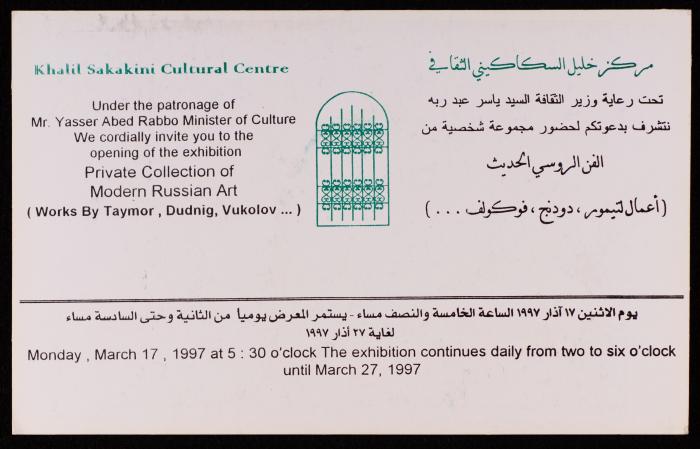 Khalil Sakakini Cultural Centre
Under the patronage of
Mr. Yasser Abed Rabbo Minister of Culture
We cordially invite you to the
opening of the exhibition
Private Collection of
Modern Russian Art
( Works By Taymor , Dudnig, Vukolov ... )
مركز خليل السكاكيني الثقافي
تحت رعاية وزير الثقافة السيد ياسر عبد ربه
نتشرف بدعوتكم لحضور مجموعة شخصية من
الفن الروسي الحديث
(أعمال لتيمور ، دودنج ، فوكولف ... )
يوم الاثنين ١٧ آذار ١٩٩٧ الساعة الخامسة والنصف مساء - يستمر المعرض يومياً من الثانية وحتى السادسة مساء
لغاية ٢٧ آذار ١٩٩٧
Monday , March 17 , 1997 at 5 : 30 o'clock The exhibition continues daily from two to six o'clock
until March 27, 1997